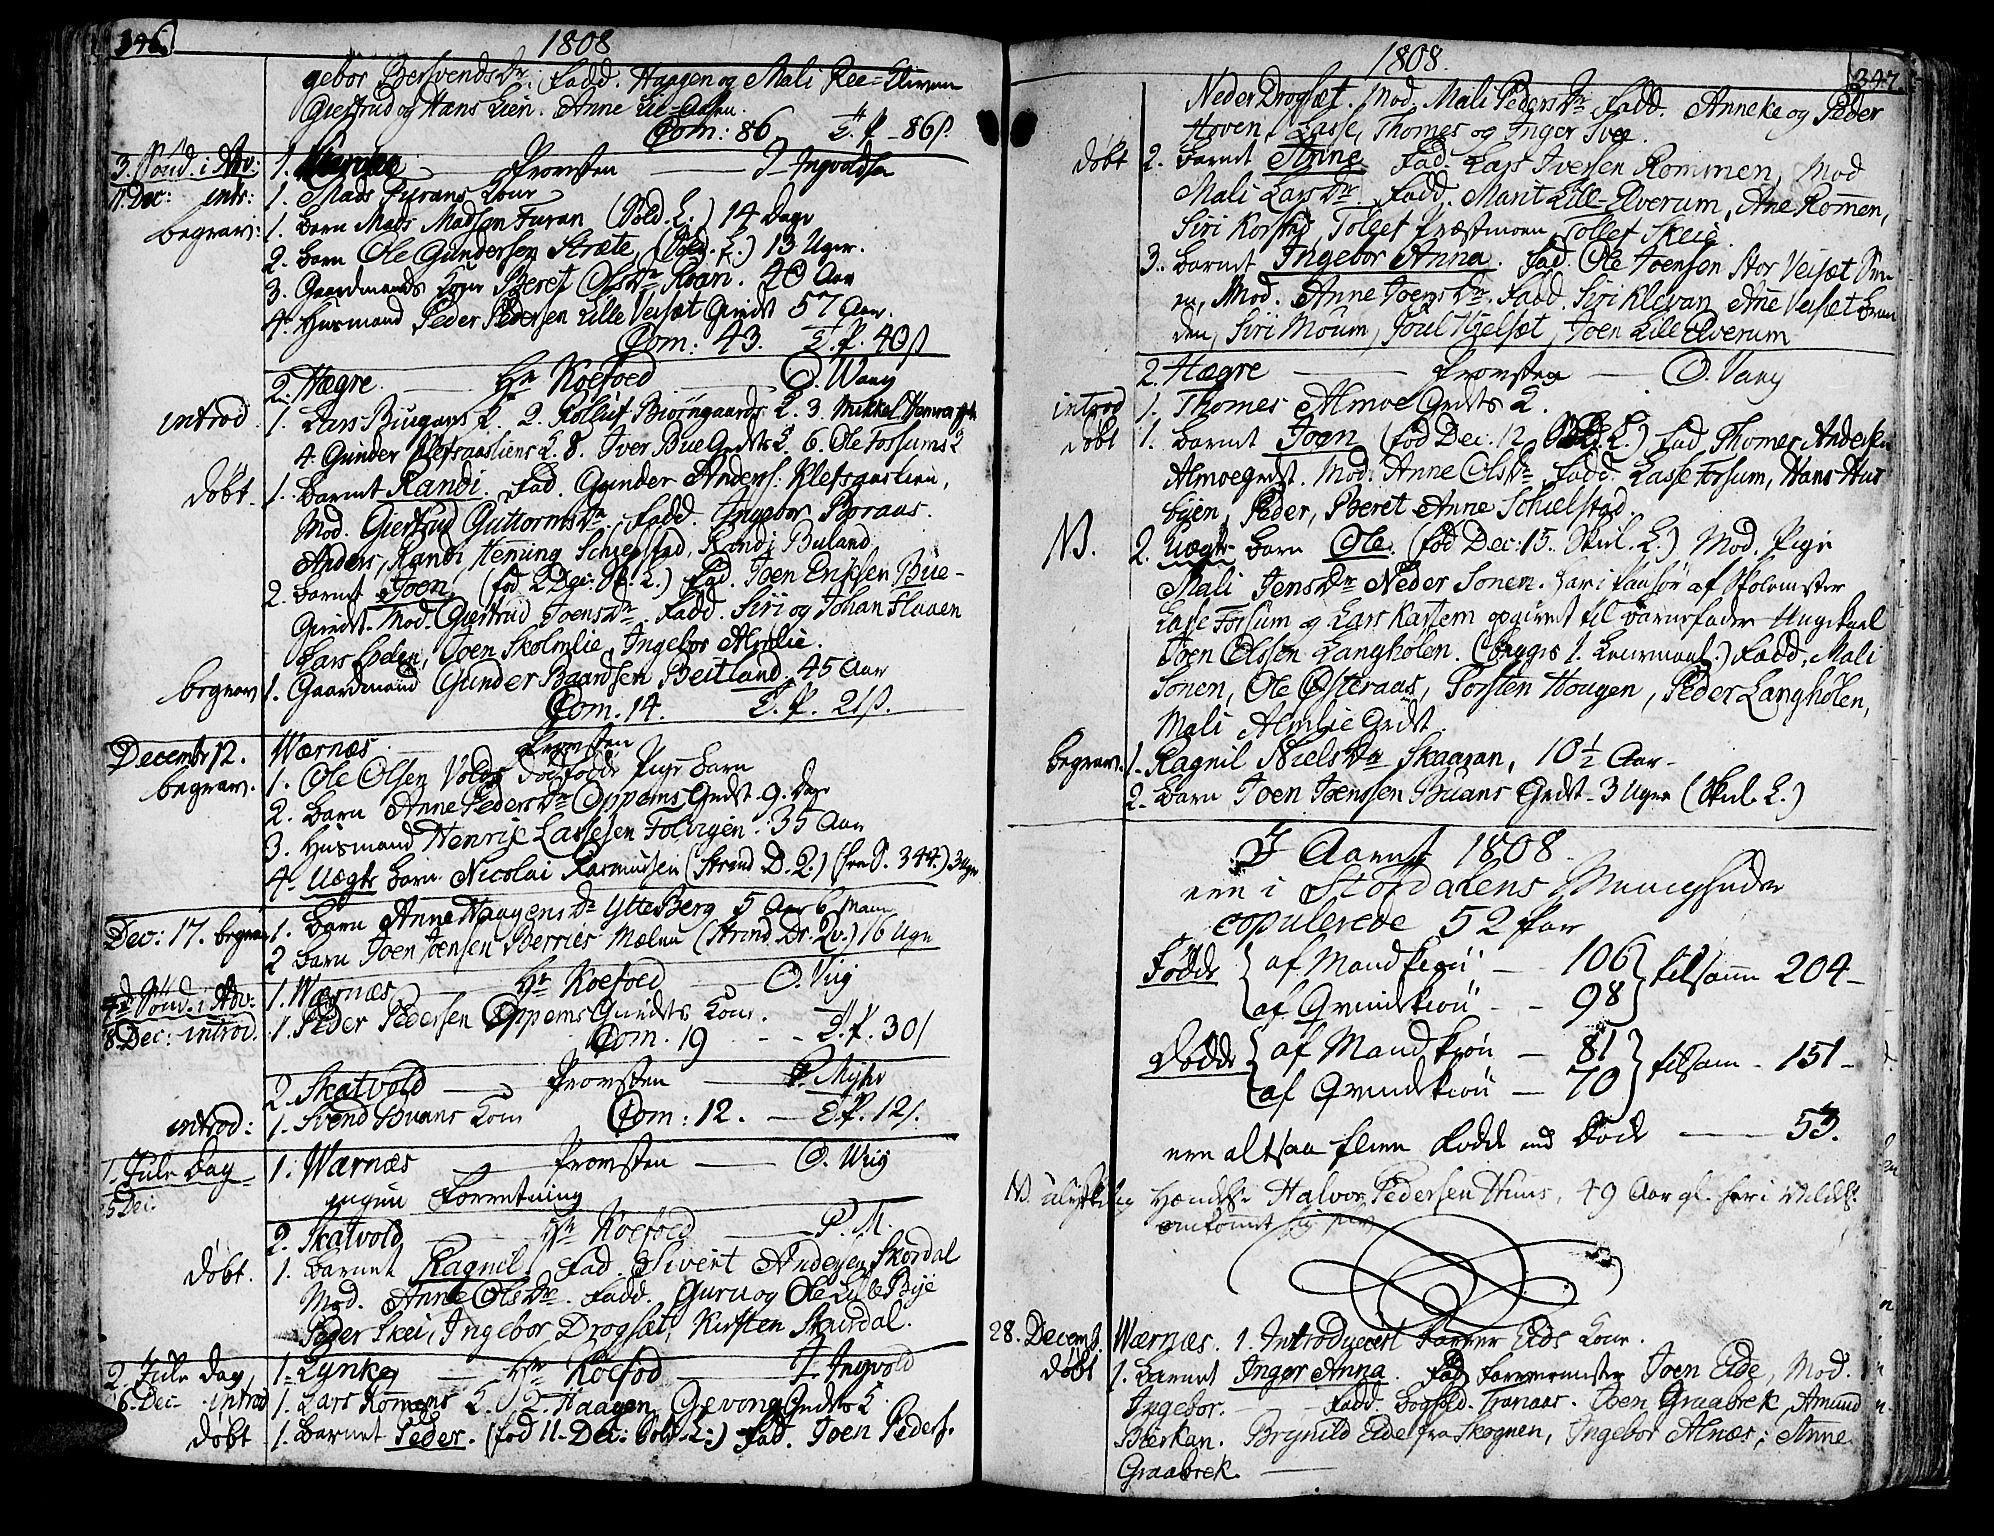 346.
1808
gebor BersvendsDr. Fadd. Haagen og Mali Ree-Elverum
Giertrud og Hans Lien. Anne Lie-Aasen.
Com: 86. T. P. 86 s.
3. Sönd. i Adv: 1. Provsten J. Ingvoldsen
11. Dec: intr: 1. Mads Furans Kone
begrav: 1. barn Mads Madsen Furan (Sold. L.) 14 Dage
2. barn Ole Gundersen Stræte, (Sold. L.) 13 Uger.
3. Gaardmands Kone Beret OlsDr Kvan. 40 Aar
4. Husmand Peder Pedersen Lille Veisæt Griedt 57 Aar.
Com: 43. T. P. 40 s
2. Hægre Hr Koefoed O. Wang
introd. 1. Lars Biugans K. 2. Kollut Biörngaards K. 3. Mikkel
4. Gunder Kletsaasliens K. 8. Iver Bue Gredts K. 6. Ole Fossums K
döbt. 1. barnet Randi. Fad. Gunder Anders: Kletsaaslien,
Mod. Giertrud GuttormsDr. Fadd. Ingebor Boraas.
Anders, Randi Hening Schielstad, Randi Buland
2. barnet Joen, (föd 2 Dec. Sk. L.) Fad. Joen Eriksen Bue-
Gredt. Mod. Giertrud JoensDr. Fadd. Siri og Johan Flaaen
Lars Helen, Joen Skolmlie, Ingebor Almlie.
begrav 1. Gaardmand Gunder Baardsen Beitland. 45 Aar
Com. 14. T. P. 21 s.
Decembr 12. Wærnæs Provsten
begrav. 1. Ole Olsen Volds dödfödde Pige barn
2. barn Anne PedersDr Oppems Gredt. 9. Dage
3. Husmand Henrik Lassesen Folvigen. 35 Aar
4. Uægte barn Nicolai Rasmussen (Strand D. 2.) (fra S. 344.) 3 Uger
Dec: 17. begrav 1. barn Anne HaagensDr Ytte Berg 5 Aar 6 Maan
2 barn Joen Joensen Berries Mælen (Strind. Dr. Qv.) 16 Uger
4de Sönd. i Adv: 1. Wærnæs Hr Koefoed O. Viig
18. Dec: introd. 1. Peder Pedersen Oppems Gredts Kone.
Com. 19 T. P. 30 s
2. Skatvold Provsten P. Myhr
introd: 1. Svend Buans Kone Com: 12. T. P. 12 s.
1. Jule Dag 1. Wærnæs Provsten O. Wiig
25 Dec. ingen Forretning
2. Skatvold Hr Koefoed P. M.
döbt. 1. barnet Ragnil Fad. Sivert Andersen Skordal
Mod. Anne OlsDr. Fadd. Guru og Ole Lille Bye
Peder Skei, Ingebor Drogsæt, Kirsten Skordal.
2. Jule Dag, 1. Lynke Hr Koefod J. Ingvold
26. Dec. introd 1. Lars Romens K. 2. Haagen Geving Gredts K
döbt 1. barnet Peder. (föd 11. Dec: Sold. L.) Fad. Joen Peders.
1808.
347.
Neder Drogsæt. Mod. Mali PedersDr Fadd. Anneke og Peder
Hoven, Lasse, Thomes og Inger Tveg.
döbt 2. barnet Anne Fad. Lars Iversen Rommen, Mod
Mali LarsDr. Fadd. Marit Lille-Elverum, Ane Romen,
Siri Korstad, Tolget Præstmoen, Tollef Skeie.
3. barnet Ingebor Anna. Fad. Ole Joensen Stor Veisæt
Mod. Anne JoensDr. Fadd. Siri Klevan, Ane Veisæt
Siri Moum, Poul Hielsæt, Joen Lille Elverum
2. Hægre Provsten O. Vang
introd 1. Thomes Almoe Gredts K.
döbt 1. barnet Joen (föd Dec. 12. L.) Fad Thomes Andersen
Almoegredt. Mod. Anne OlsDr Fadd. Lasse Fossum, Hans Hus
byen, Peder, Beret Anne Schielstad.
N. 2. Uægte barn Ole. (föd Dec. 15. Skiel. L.) Mod. Pige
Mali JensDr Neder Sonen. har i Paasör af Skolemester
Lasse Fossum og Lars Kartem opgivet til barnefader Ungekarl
Joen Olssen Langhölen. (begges 1. Leiermaal.) Fadd. Mali
Sonen, Ole Österaas, Torsten Hougen, Peder Langhölen,
Mali Almlie Gredt.
begrav. 1. Ragnil NielsDr Skaaran, 10 1/2 Aar.
2. barn Joen Joenssen Buans Gredt. 3 Uger (Skiel. L.)
I Aaret 1808.
ere i Stördalens Menigheder
copulerede 52 Par
Födde { af Mandkiön — 106 } tilsamn 204 —
af Qvindekiön — 98
Dödde { af Mandkiön — 81 } tilsam — 151 —
af Qvindekiön — 70
ere altsaa flere Födde end Döde — 53.
N. ulykkelig Hændelse Halvor Pedersen Huus, 49 Aar gl.
28. Decemb. Wærnæs. 1. Introduceret Farver Eids Kone.
döbt 1. barnet Inger Anna. Fad Farvermester Joen Eide, Mod.
Ingebor. Fadd. Tranaas. Joen Graabrek Amund
Bierkan. Brynild Eide fra Skognen, Ingebor Alnæs; Anne
Graabrek.